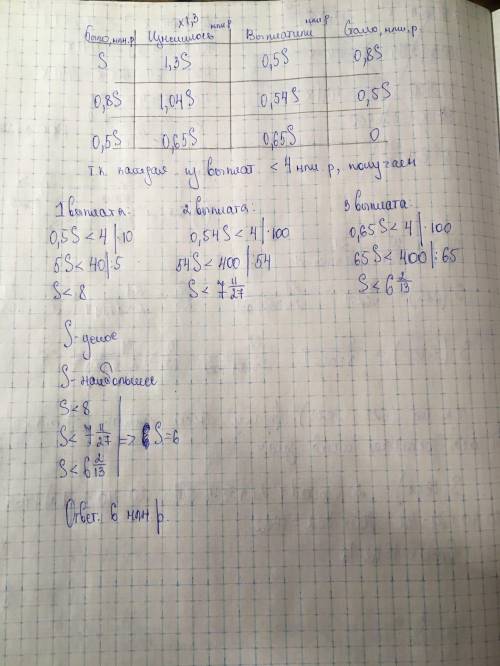 x1,3
Было, млн.р Изменилось млн р Выплатили млн р Стало, млн.р
S 1,3S 0,5S 0,8S
0,8S 1,04S 0,54S 0,5S
0,5S 0,65S 0,65S 0
т.к. каждая из выплат < 4 млн р, получаем
1 выплата: 2 выплата: 3 выплата:
0,5S < 4 |·10 0,54S < 4 |·100 0,65S < 4 |·100
5S < 40 |:5 54S < 400 |:54 65S < 400 |:65
S < 8 S < 7 11/27 S < 6 2/13
S - целое
S - наибольшее
S < 8
S < 7 11/27 => S = 6
S < 6 2/13
Ответ: 6 млн р.